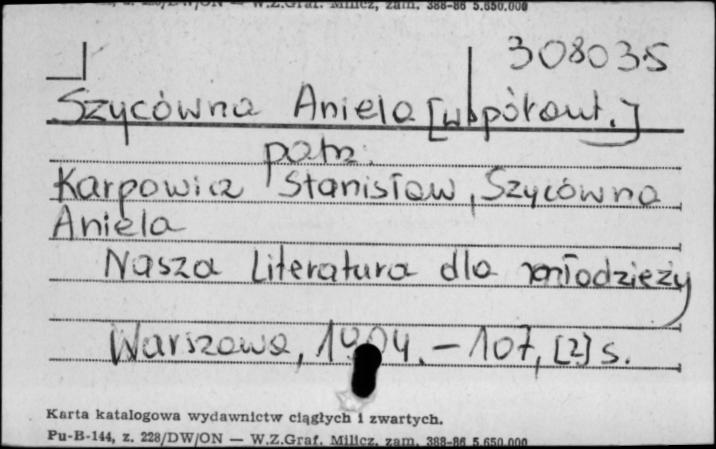 W.Z.Graf. Milicz, zam. 388-86 5.650.000
308035
Szycówna Aniela [współaut.]
patrz:
Karpowicz Stanisław, Szycówna
Aniela
Nasza literatura dla młodzieży
Warszawa, 1904. — 107, [2] s.
Karta katalogowa wydawnictw ciągłych i zwartych.
Pu-B-144, z. 228/DW/ON — W.Z.Graf. Milicz, zam. 388-86 5.650.000